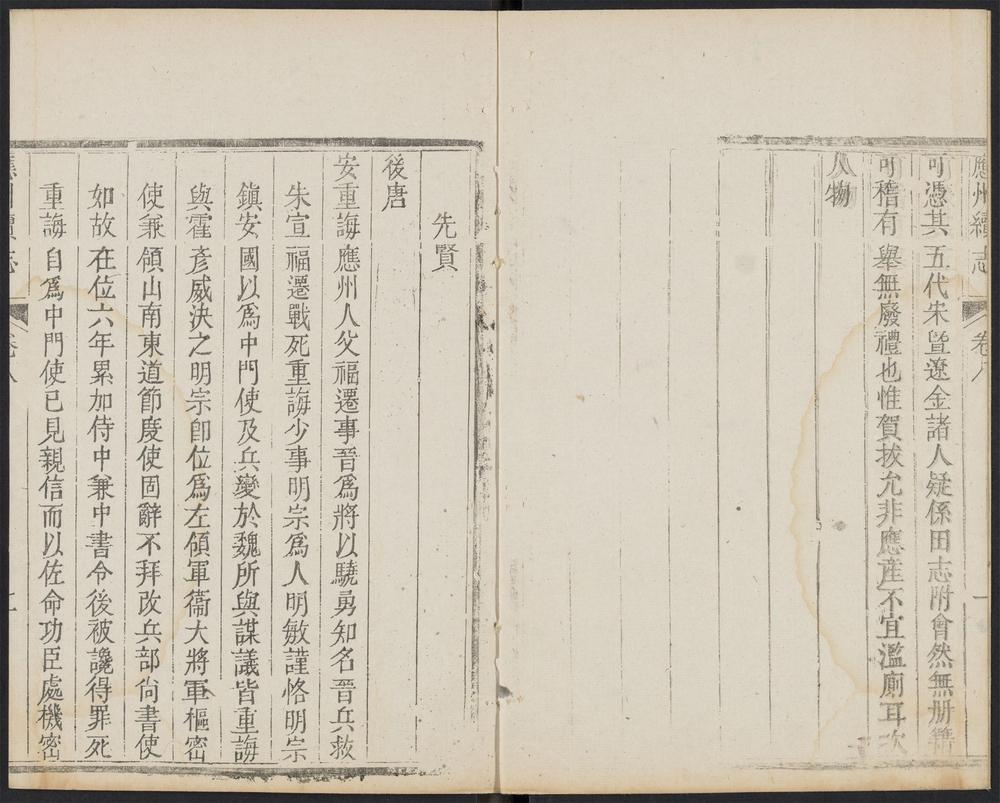 應州續志 卷八 一
可憑其五代宋暨遼金諸人疑係田志附會然無册籍
可稽有舉無廢禮也惟賀拔允非應産不宜濫廁耳次
人物
先賢
後唐
安重誨應州人父福遷事晉爲將以驍勇知名晉兵救
朱宣福遷戰死重誨少事明宗爲人明敏謹恪明宗
鎮安國以爲中門使及兵變於魏所與謀議皆重誨
與霍彥威決之明宗卽位爲左領軍衞大將軍樞密
使兼領山南東道節度使固辭不拜改兵部尙書使
如故在位六年累加侍中兼中書令後被讒得罪死
重誨自爲中門使已見親信而以佐命功臣處機密
應州續志 卷八